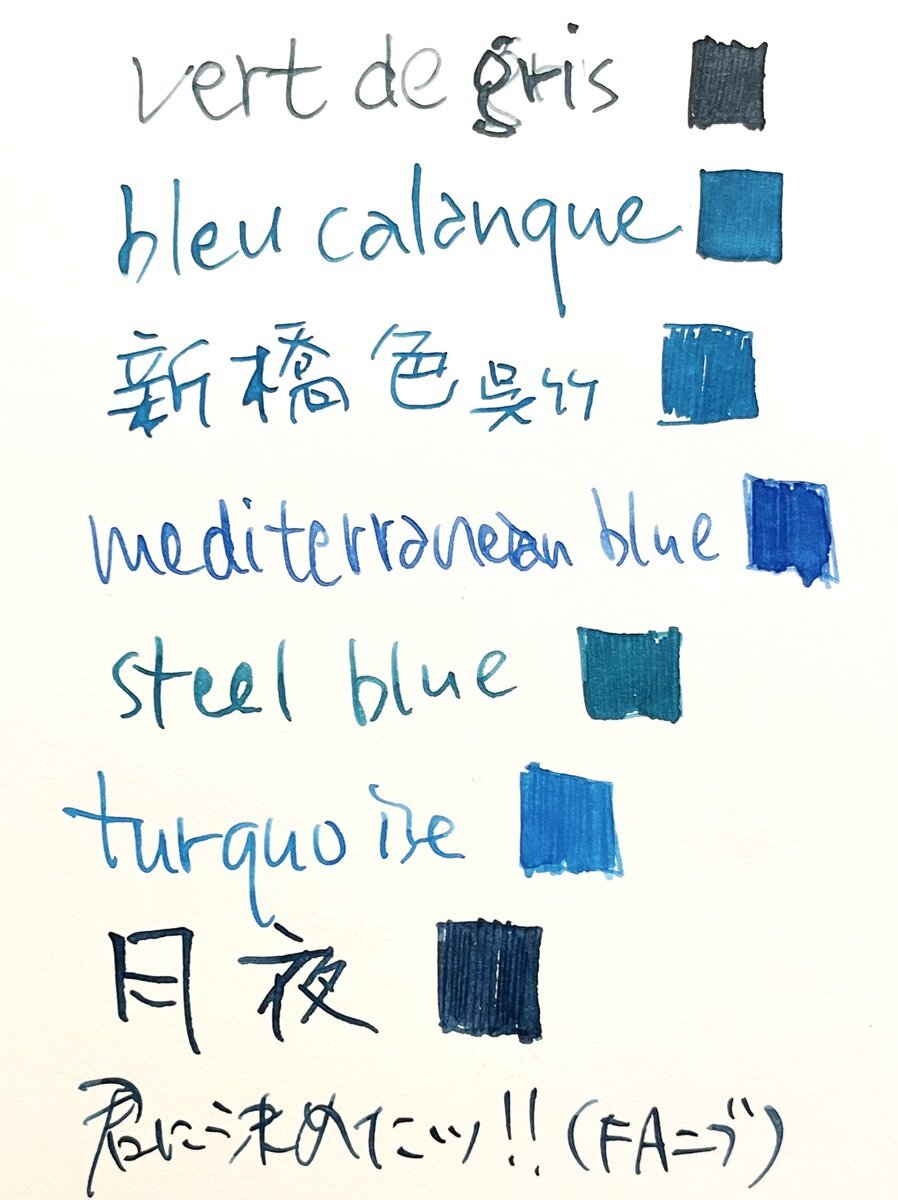 vert de gris
bleu calanque
新橋色 呉竹
mediterranean blue
steel blue
turquoise
月夜
君に決めたッ!! (FAニブ)